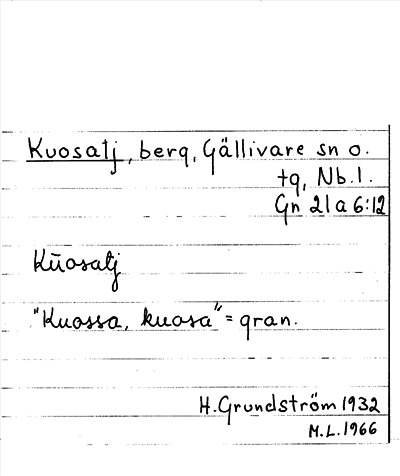 Kuosatj, berg, Gällivare sn o.
tg, Nb.l.
Gn 21a6:12
Kūosatj
"Kuossa, kuosa" = gran.
H. Grundström 1932
M.L. 1966